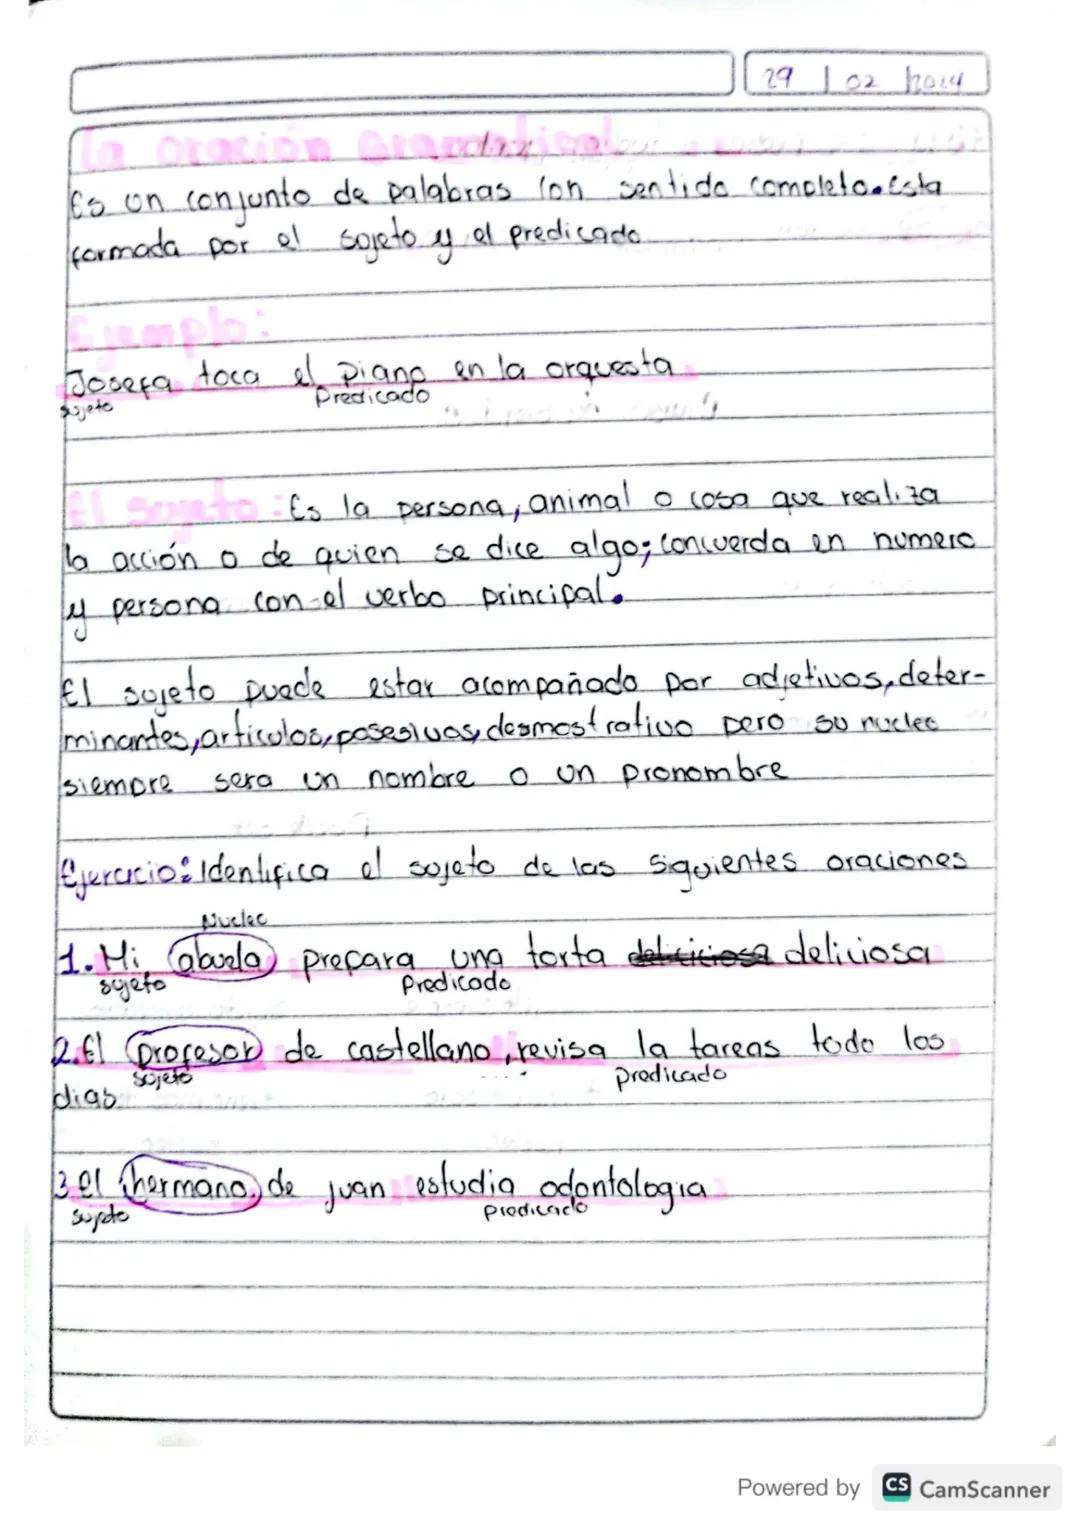 29 / 02 / 2024
La oración Gramatical
Es un conjunto de palabras con sentido completo. Esta
formada por el sujeto y el predicado
Ejemplo:
Josefa toca el piano en la orquesta
sujeto Predicado
El sujeto: Es la persona, animal o cosa que realiza
la acción o de quien se dice algo; concuerda en numero
y persona con el verbo principal.
El sujeto puede estar acompañado por adjetivos, deter-
minantes, articulos, posesivos, desmostrativo pero su nucleo
siempre sera un nombre o un pronombre
Ejercicio: Identifica el sujeto de las siguientes oraciones
Nucleo
1. Mi abuela prepara una torta deliciosa deliciosa
sujeto Predicado
2. El profesor de castellano, revisa la tareas todo los
sujeto predicado
dias
3. El hermano, de juan estudia odontologia
sujeto predicado
Powered by CS CamScanner